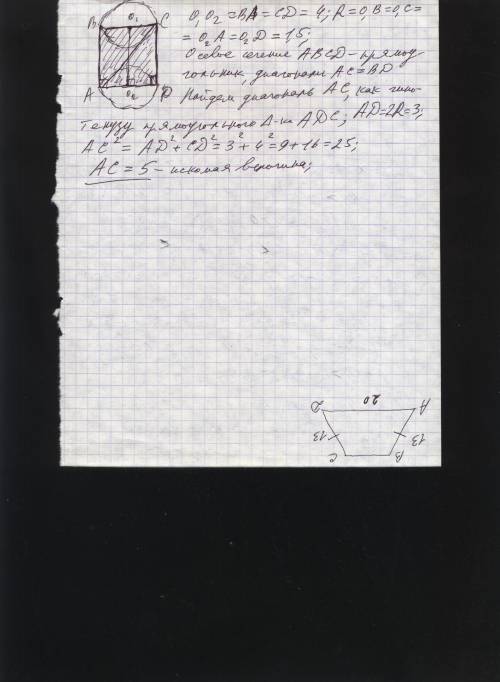 B O₁ C
A O₂ D
O₁O₂ = BA = CD = 4; R = O₁B = O₁C =
= O₂A = O₂D = 1,5;
Осевое сечение ABCD – прямоу
гольник, диагонали AC = BD
Найдем диагональ AC, как гипо-
тенузу прямоугольного Δ-ка ADC; AD = 2R = 3;
AC² = AD² + CD² = 3² + 4² = 9 + 16 = 25;
AC = 5 – искомая величина;
A 20 D
13 13
B C